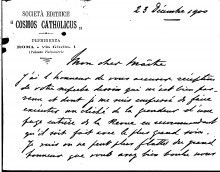 SOCIETÀ EDITRICE
"COSMOS CATHOLICUS"
23 Décembre 1900
Mon cher Maître
J'ai l'honneur de vous accuser réception
de votre superbe dessin qui m'est bien par-
venu et dont je me suis empressé de faire
exécuter un cliché de la grandeur d'une
page entière de la Revue en recommandant
qu'il soit fait avec le plus grand soin.
Je suis on ne peut plus flatté du grand
honneur que vous avez bien voulu nous